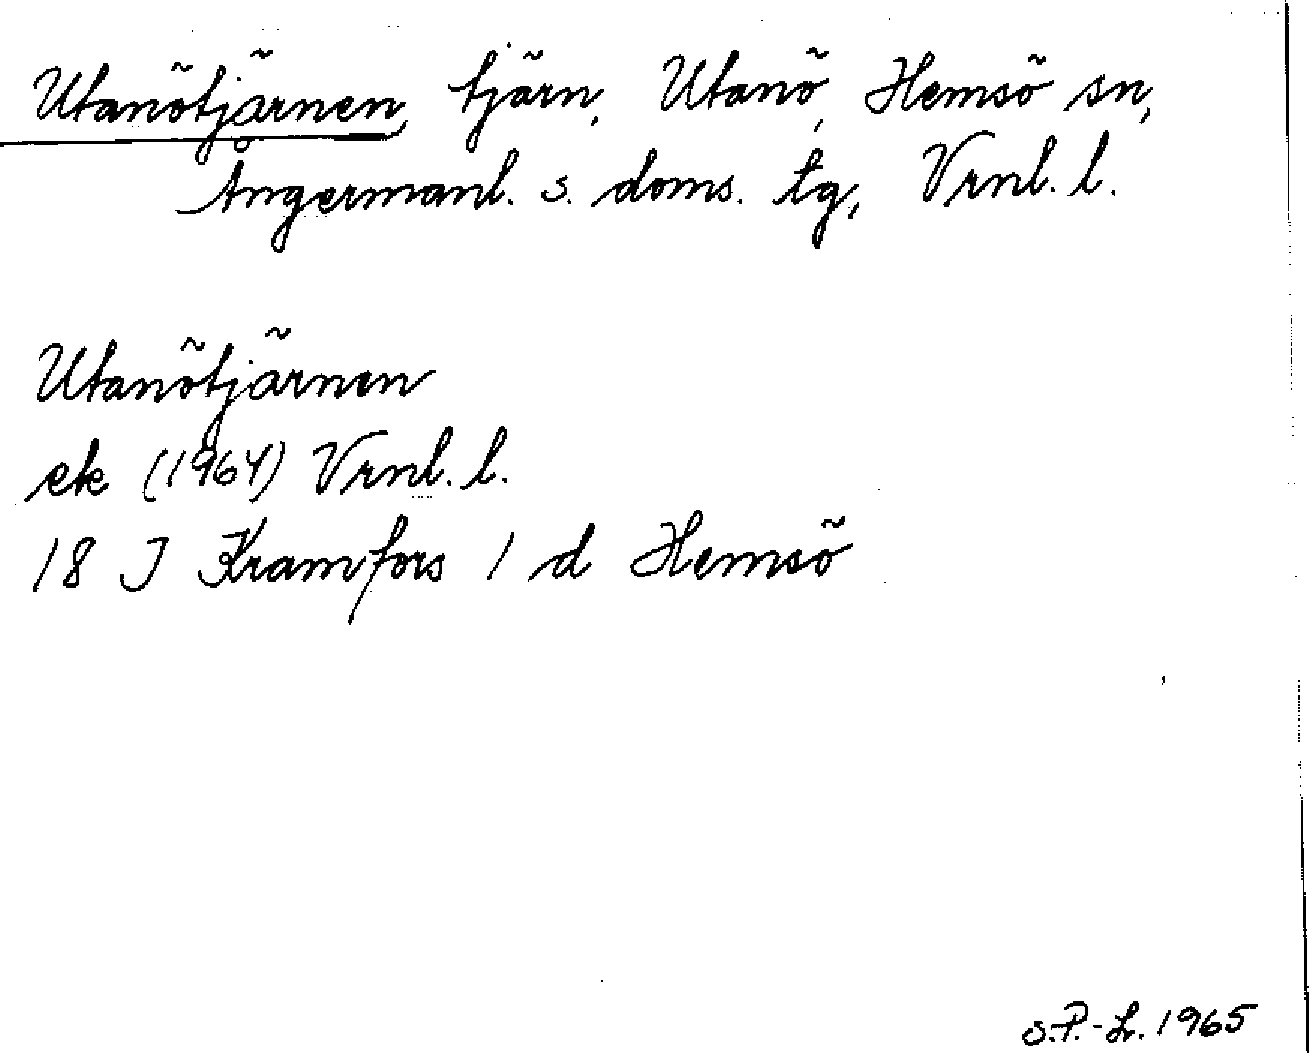 Utanötjärnen, tjärn, Utanö, Hemsö sn,
Ångermanl. s. doms. tg, Vrnl. l.
Utanötjärnen
ek (1964) Vrnl. l.
18 J Kramfors 1 d Hemsö
S.P.-L. 1965